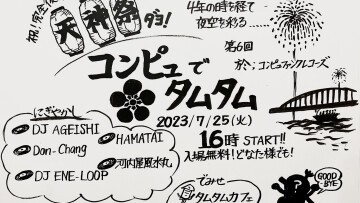 祝!完全復
天神祭
ダヨ!
4年の時を経て
夜空を彩る……
第6回
於;コンピュファンクレコーズ
コンピュで
タムタム
2023/7/25(火)
16時 START!!
入場無料!どなた様でも!
にぎやかし
DJ AGEISHI
Dan-Chang
DJ ENE-LOOP
HAMATAI
河内屋風水丸
でみせ
タムタムカフェ
GOOD-BYE